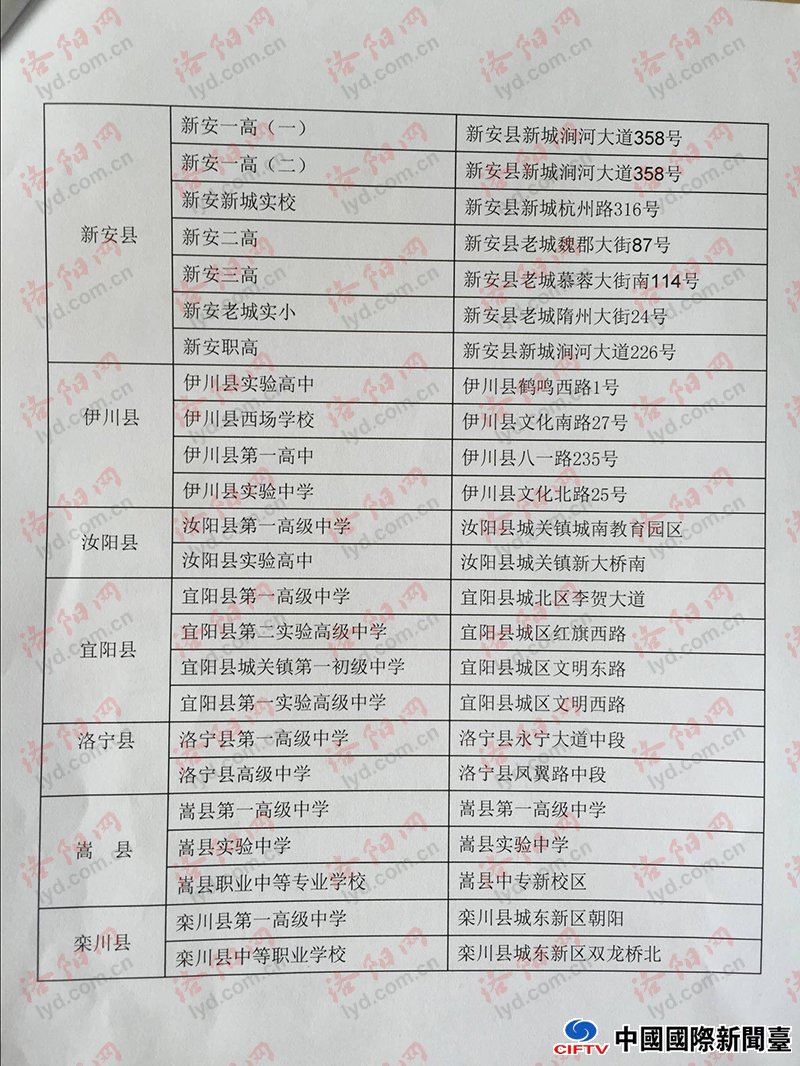 新安县
新安一高（一） 新安县新城涧河大道358号
新安一高（二） 新安县新城涧河大道358号
新安新城实校 新安县新城杭州路316号
新安二高 新安县老城魏郡大街87号
新安三高 新安县老城慕蓉大街南114号
新安老城实小 新安县老城隋州大街24号
新安职高 新安县新城涧河大道226号
伊川县
伊川县实验高中 伊川县鹤鸣西路1号
伊川县西场学校 伊川县文化南路27号
伊川县第一高中 伊川县八一路235号
伊川县实验中学 伊川县文化北路25号
汝阳县
汝阳县第一高级中学 汝阳县城关镇城南教育园区
汝阳县实验高中 汝阳县城关镇新大桥南
宜阳县
宜阳县第一高级中学 宜阳县城北区李贺大道
宜阳县第二实验高级中学 宜阳县城区红旗西路
宜阳县城关镇第一初级中学 宜阳县城区文明东路
宜阳县第一实验高级中学 宜阳县城区文明西路
洛宁县
洛宁县第一高级中学 洛宁县永宁大道中段
洛宁县高级中学 洛宁县凤翼路中段
嵩 县
嵩县第一高级中学 嵩县第一高级中学
嵩县实验中学 嵩县实验中学
嵩县职业中等专业学校 嵩县中专新校区
栾川县
栾川县第一高级中学 栾川县城东新区朝阳
栾川县中等职业学校 栾川县城东新区双龙桥北
洛阳网
lyd.com.cn
CIFTV 中國國際新聞臺